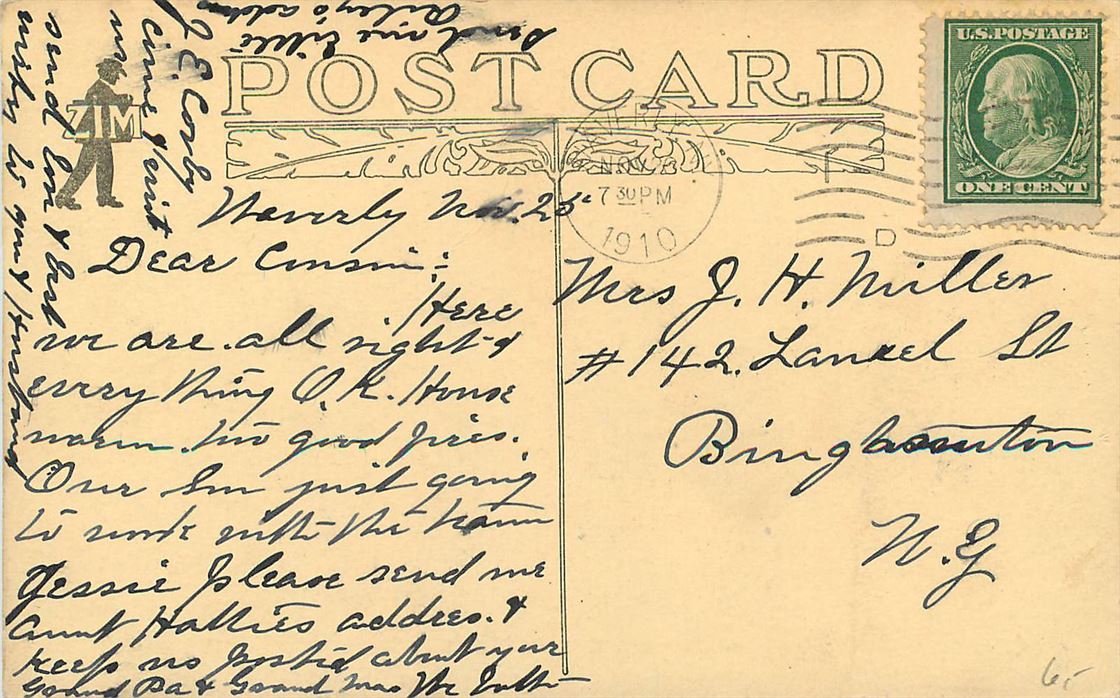 POST CARD
ZIM
U.S. POSTAGE
ONE CENT
WAVERLY
NOV 26
7 30 PM
1910
D
Waverly Nov. 25
Dear Cousin:-
Here
we are all right &
every thing O.K. House
warm. two good fires.
Our Son just going
to work with the team
Jessie please send me
aunt Hatties address. &
keep us posted about your
Grand Pa & Grand Ma We both
send love & best
wishes to you & Husband
Come & visit
us
J E Cosby
Send me Lillie
Riley's address
Mrs J. H. Miller
#142. Laurel St
Binghamton
N.Y
65